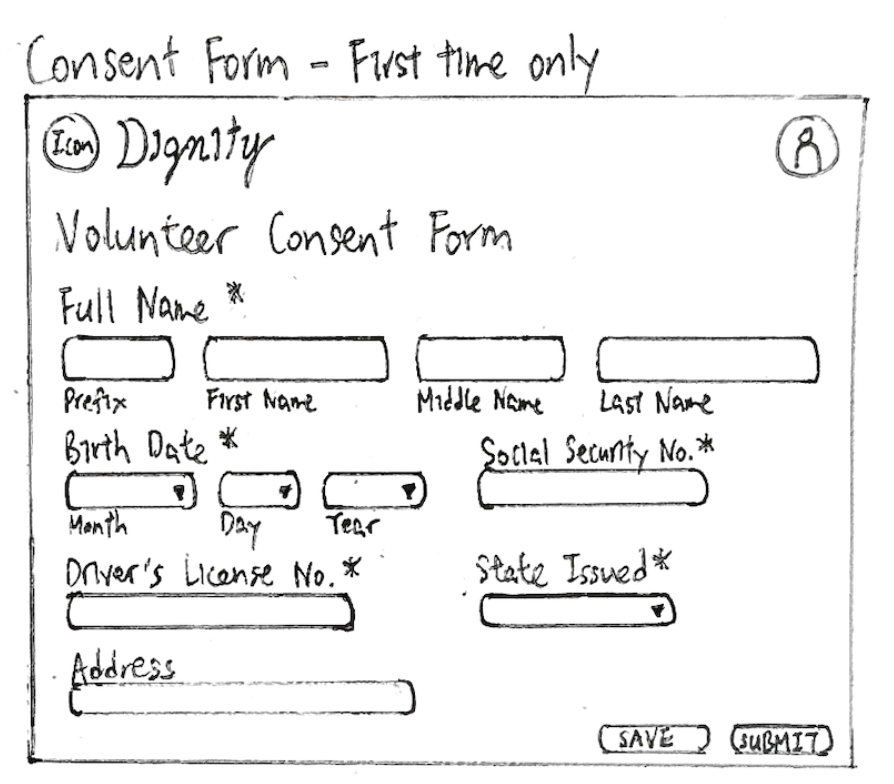 Consent Form - First time only
Icon Dignity
Volunteer Consent Form
Full Name *
Prefix First Name Middle Name Last Name
Birth Date * Social Security No.*
Month Day Year
Driver's License No.* State Issued*
Address
SAVE SUBMIT